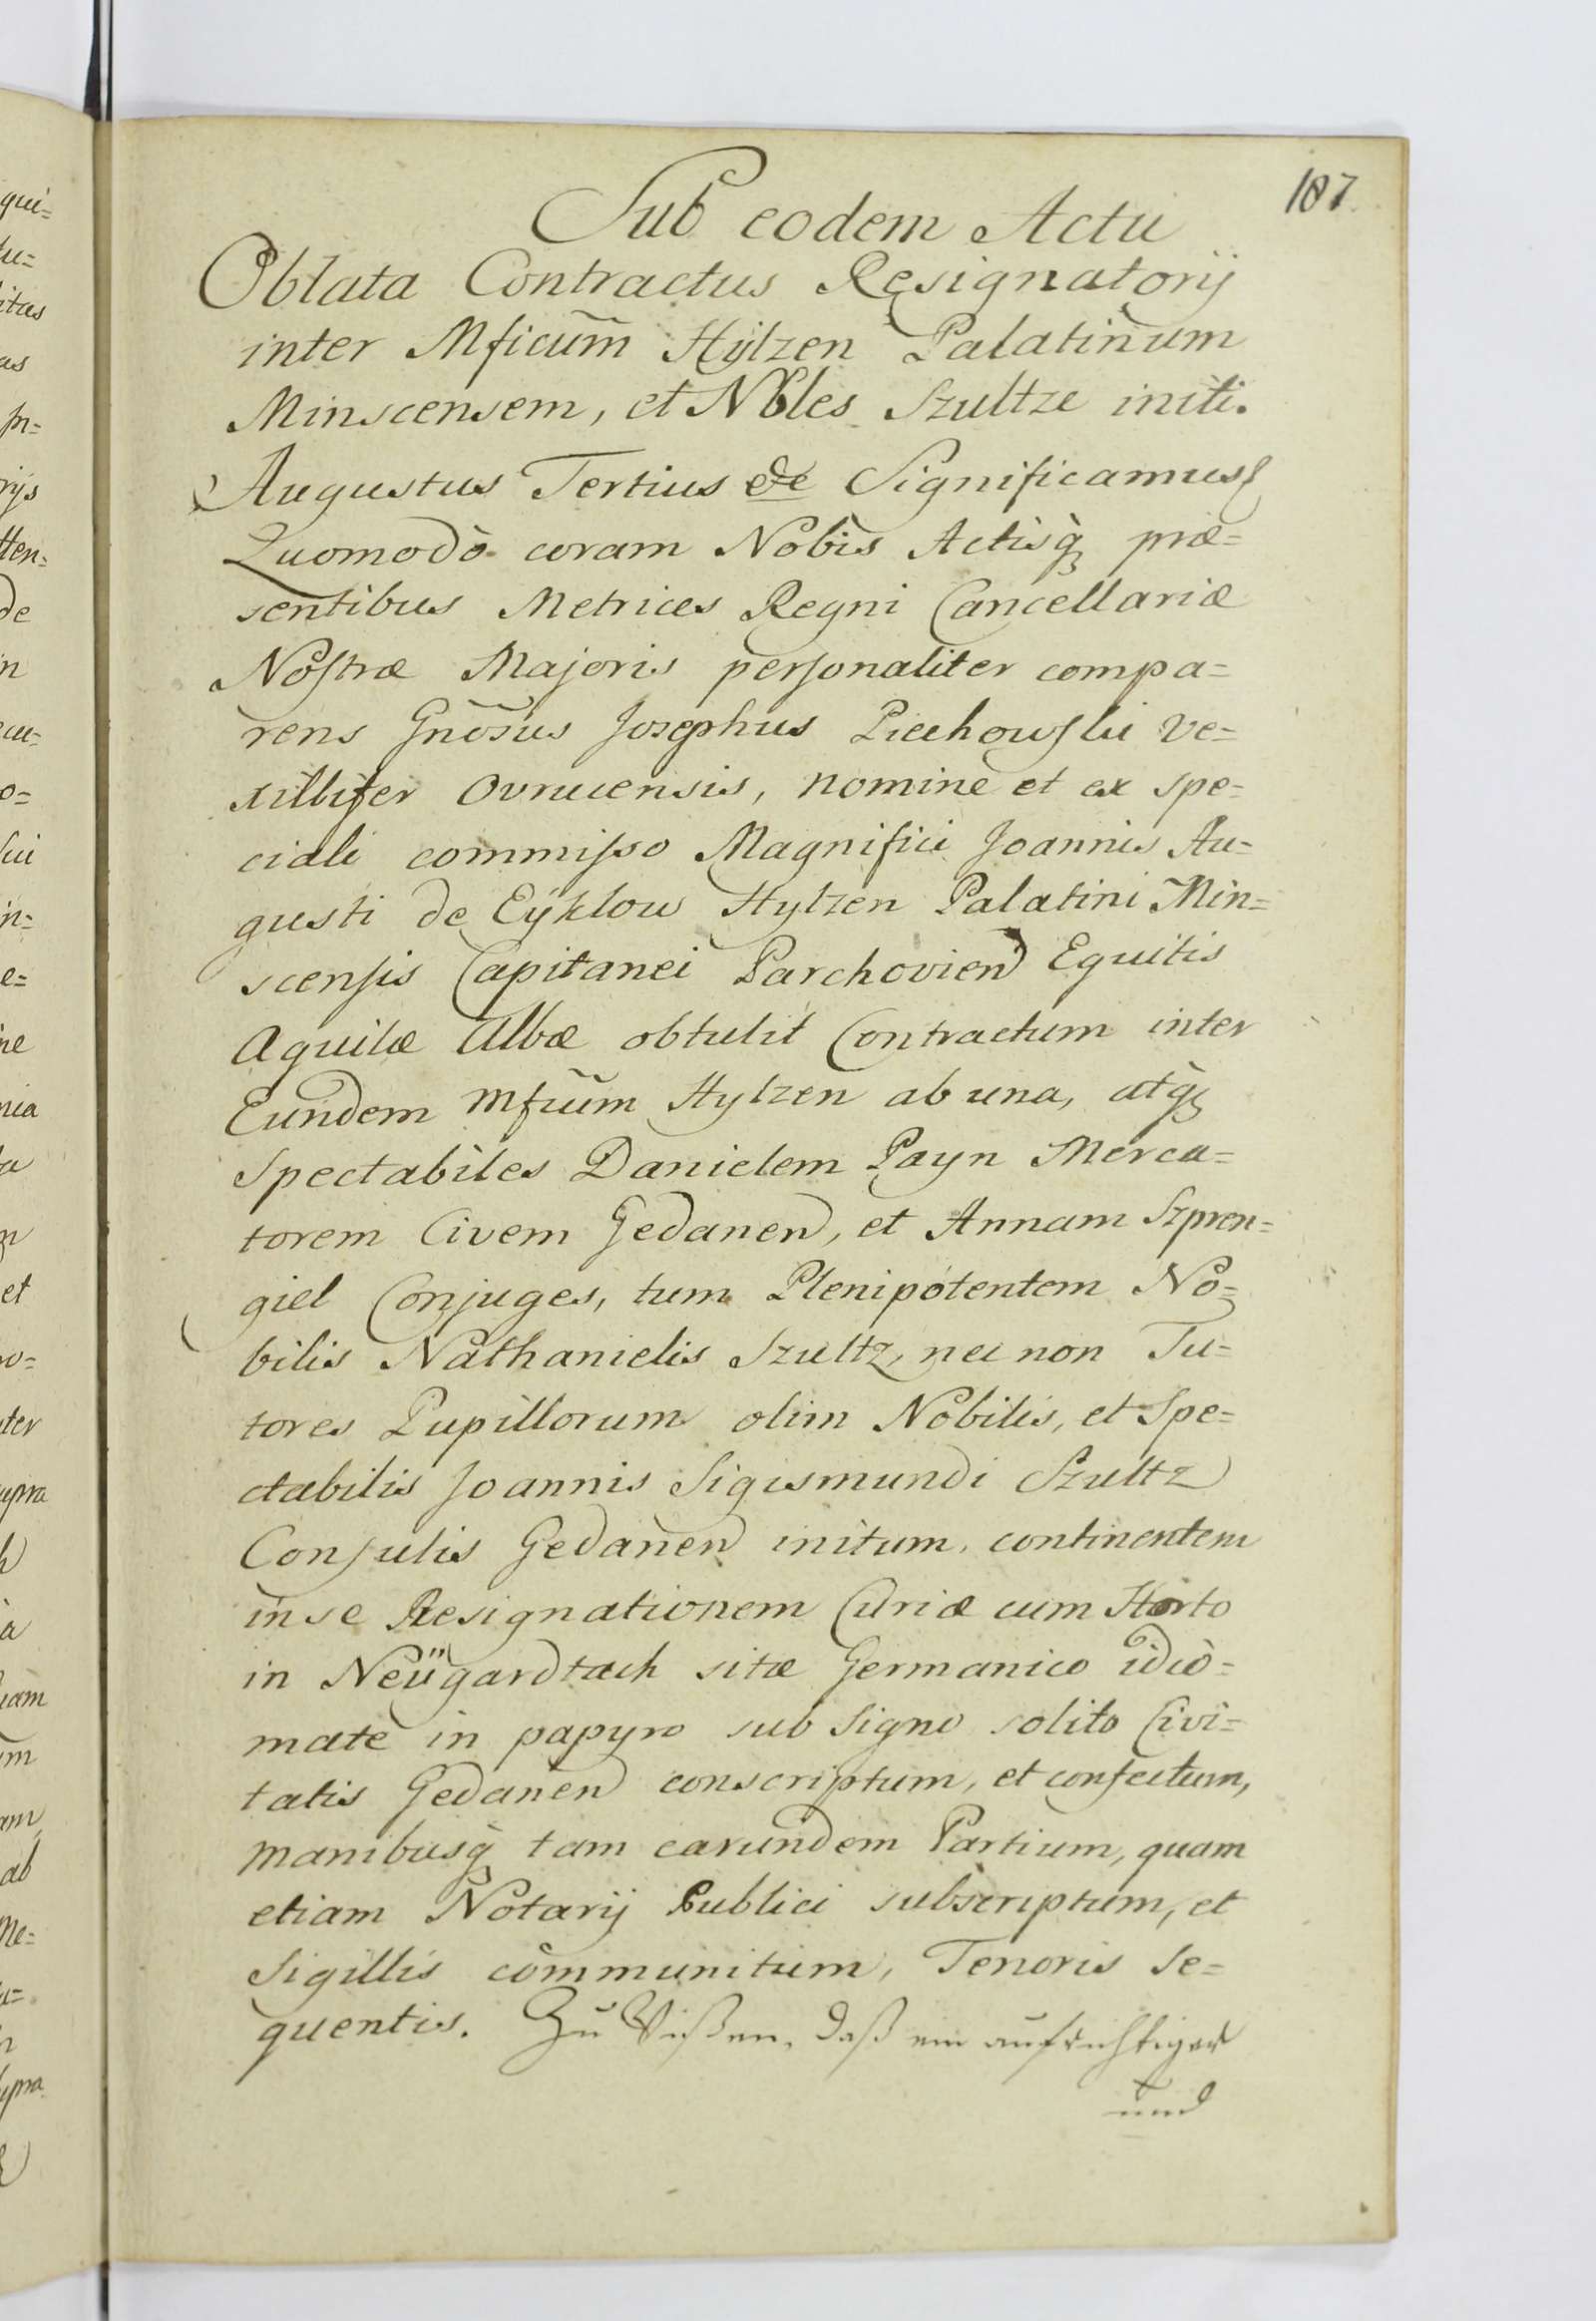 187
Sub eodem Actu
Oblata Contractus Resignatorij
inter Mficum̃ Hÿlzen Palatinum
Minscensem, et Nbles Szultze initi.
Augustus Tertius &c Significamus
Quomodò coram Nobis Actisq́ præ=
sentibus Metrices Regni Cancellariæ
Nostræ Majoris personaliter compa=
rens Gnõsus Josephus Piechowski Ve=
xillifer Ovrucensis, nomine et ex spe=
ciali commisso Magnifici Joannis Au=
gusti de Eÿklow Hylzen Palatini Min=
scensis Capitanei Parchovien Equitis
Aquilæ Albæ obtulit Contractum inter
Eundem Mficũm Hylzen ab una, atq́
Spectabiles Danielem Payn Merca=
torem Civem Gedanen, et Annam Szpren=
giel Conjuges, tum Plenipotentem No=
bilis Nathanielis Szultz, nec non Tu=
tores Pupillorum olim Nobilis, et Spe=
ctabilis Joannis Sigismundi Szultz
Consulis Gedanen initum, continentem
in se Resignationem Curiæ cum Horto
in Neügardtach sitæ Germanico idio=
mate in papyro sub Signo solito Civi=
tatis Gedanen conscriptum, et confectum,
manibusq́ tam earundem Partium, quam
etiam Notarij Publici subscriptum, et
Sigillis communitum, Tenoris Se=
quentis. Zu Wißen, daß ein aufrichtiger
und